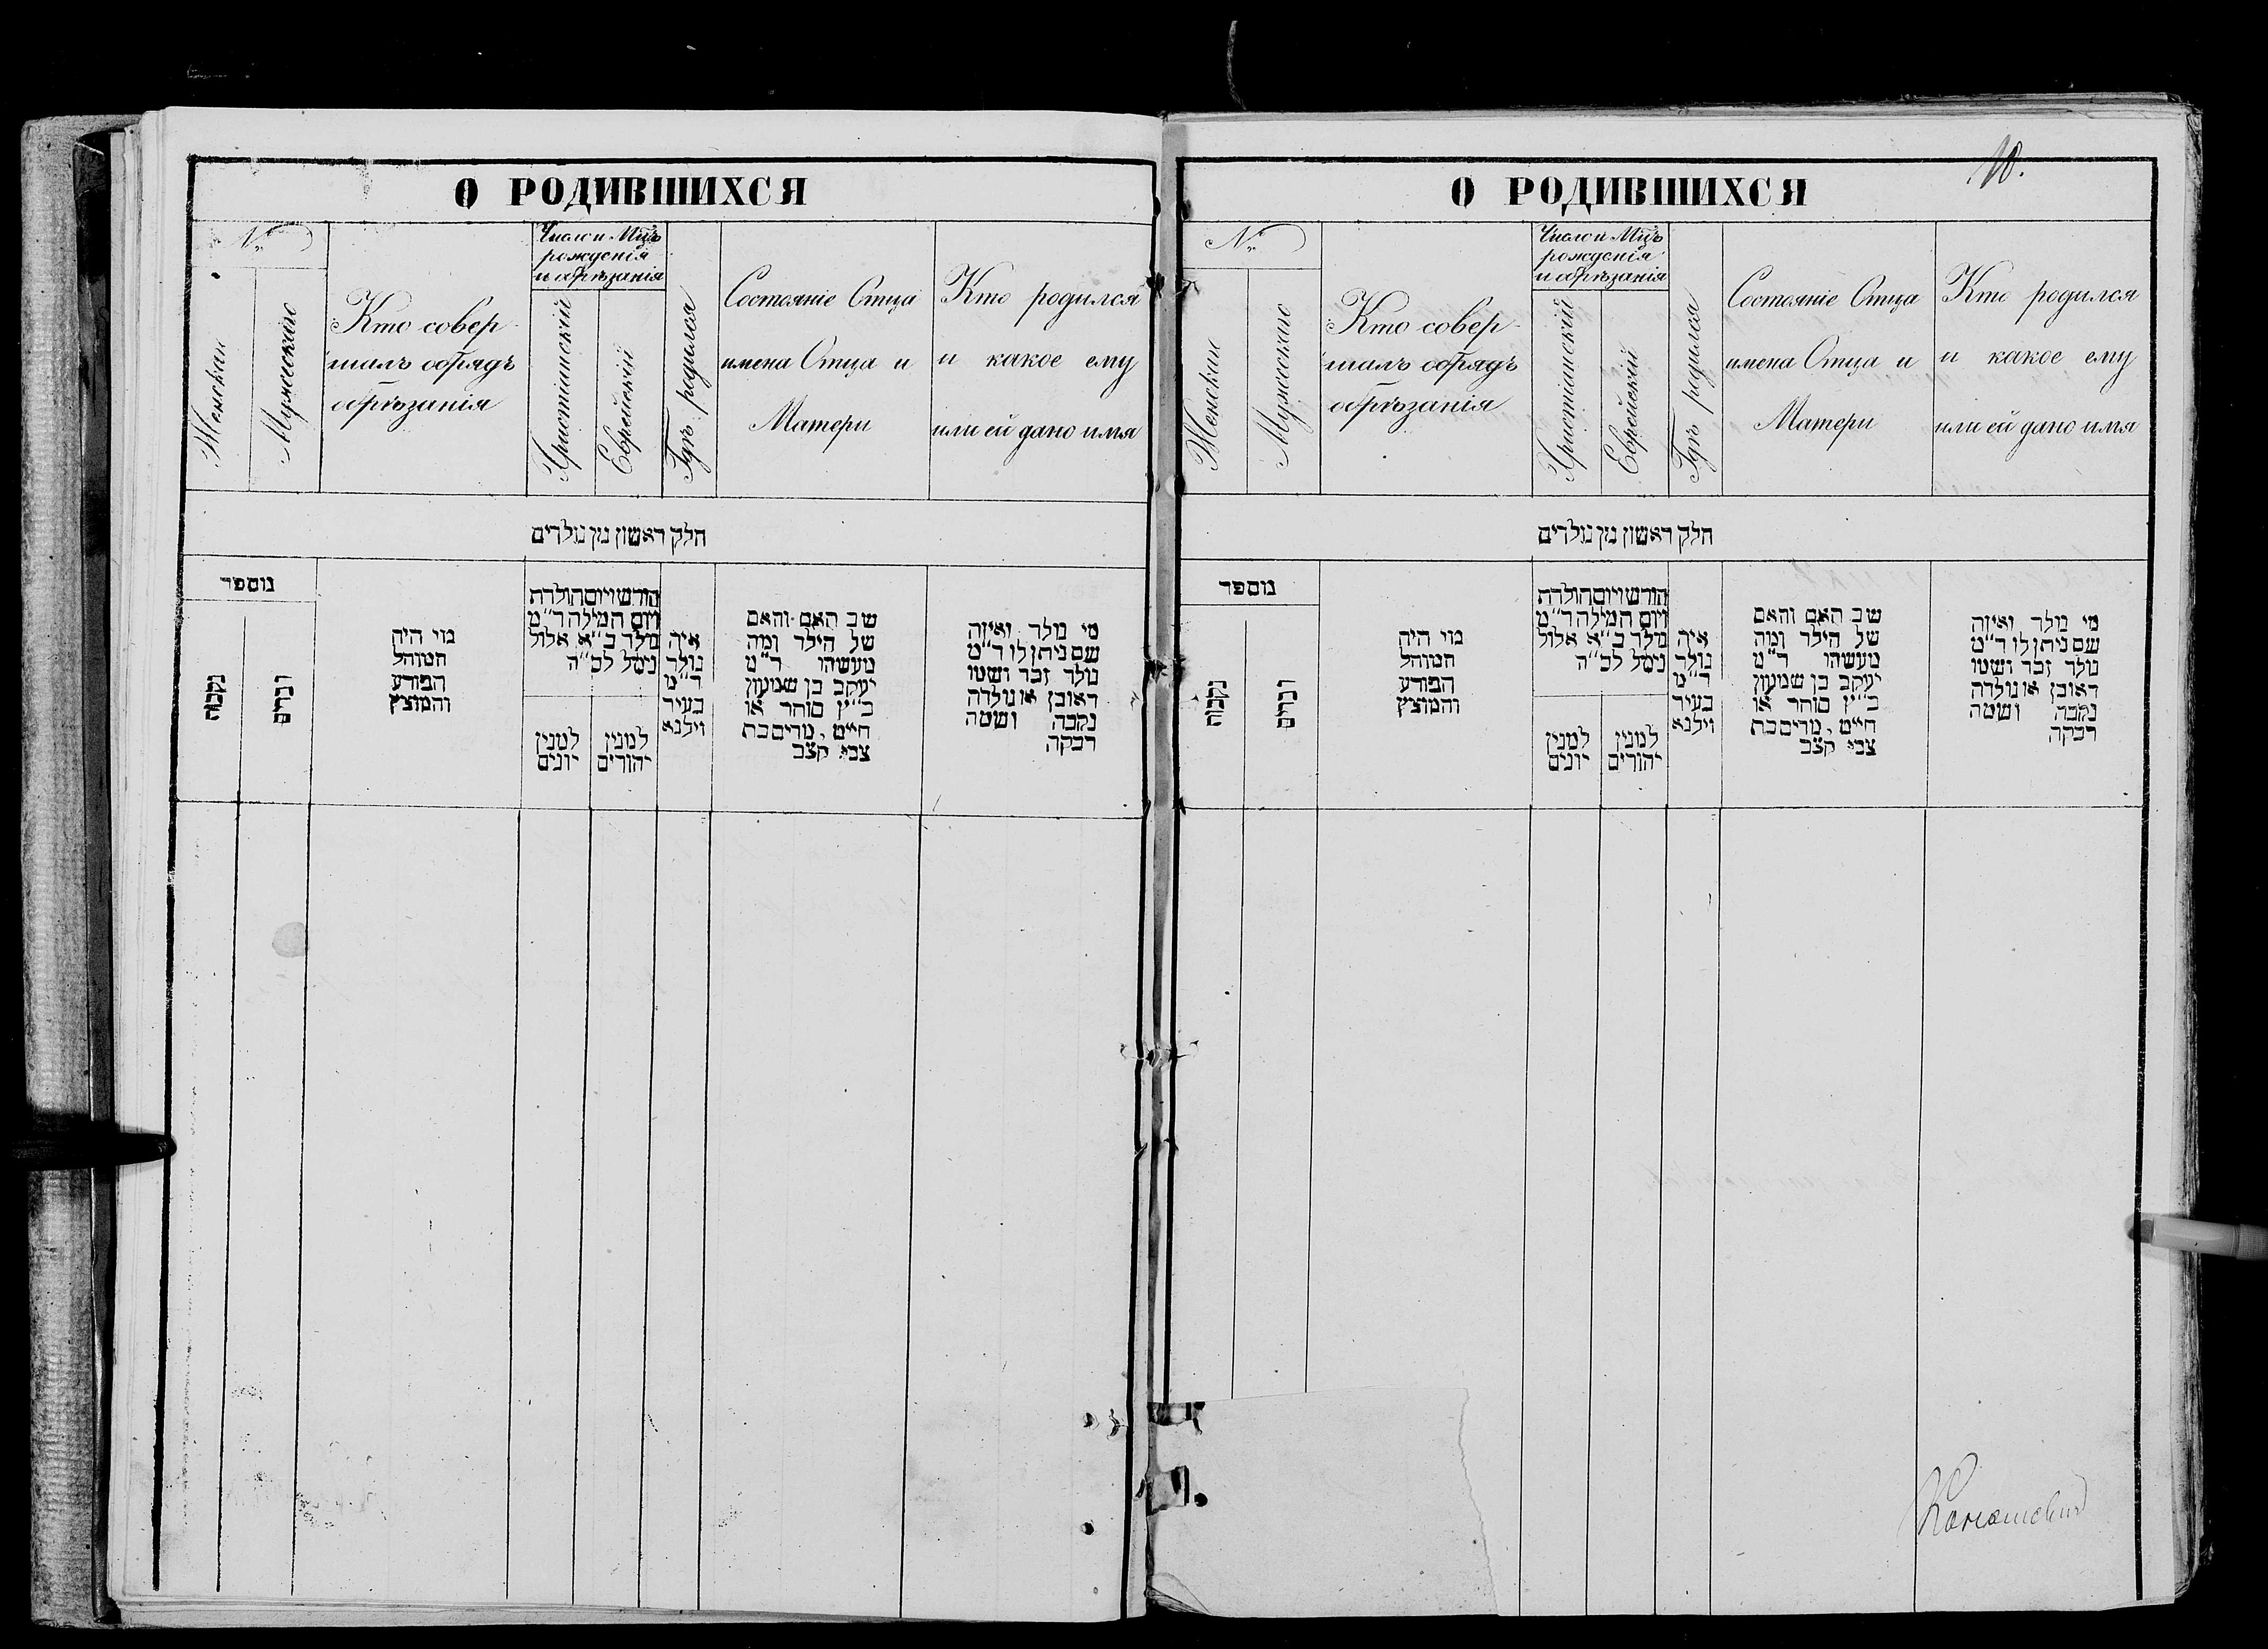 О РОДИВШИХСЯ
№
Женскаи
Мужескаго
Кто совер-
шалъ обрядъ
обрѣзанія
Число и Мцъ
рожденія
и обрѣзанія
Христіанскій
Еврейскій
Гдѣ родился
Состояніе Отца
имена Отца и
Матери
Кто родился
и какое ему
или ей дано имя
חלק ראשון מן נולדים
מספר
נקבות
זכרים
מי היה
המוהל
הפורע
והמוצץ
חודש ויום הולדת
ויום המילה ד״מ
נולד ב״א אלול
נימל לב״ה
למנין
יונים
למנין
יהודים
איה
נולד
ד״מ
בעיר
ווילנא
שם האב והאם
של הילד ומה
מעשהו ד״מ
יעקב בן שמעון
כ״ץ סוחר או
חייט, מרים בת
צבי קצב
מי נולד ואיזה
שם ניתן לו ד״מ
נולד זכר ושמו
ראובן או נולדה
נקבה ושמה
רבקה
10.
О РОДИВШИХСЯ
№
Женскаи
Мужескаго
Кто совер-
шалъ обрядъ
обрѣзанія
Число и Мцъ
рожденія
и обрѣзанія
Христіанскій
Еврейскій
Гдѣ родился
Состояніе Отца
имена Отца и
Матери
Кто родился
и какое ему
или ей дано имя
חלק ראשון מן נולדים
מספר
נקבות
זכרים
מי היה
המוהל
הפורע
והמוצץ
חודש ויום הולדת
ויום המילה ד״מ
נולד ב״א אלול
נימל לב״ה
למנין
יונים
למנין
יהודים
איה
נולד
ד״מ
בעיר
ווילנא
שם האב והאם
של הילד ומה
מעשהו ד״מ
יעקב בן שמעון
כ״ץ סוחר או
חייט, מרים בת
צבי קצב
מי נולד ואיזה
שם ניתן לו ד״מ
נולד זכר ושמו
ראובן או נולדה
נקבה ושמה
רבקה